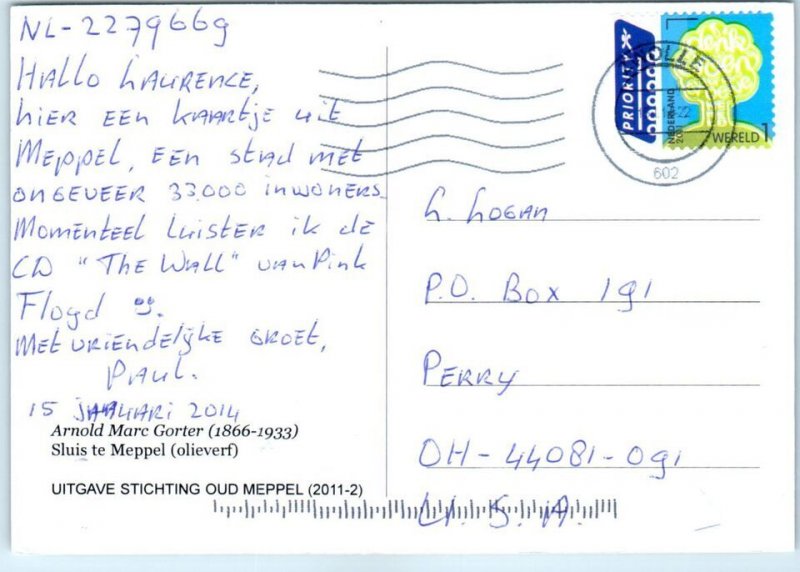 NL-2279669
Hallo Laurence,
hier een kaartje uit
Meppel, een stad met
ongeveer 33.000 inwoners.
Momenteel luister ik de
CD "The Wall" van Pink
Floyd
Met vriendelijke groet,
Paul.
15 januari 2014
Arnold Marc Gorter (1866-1933)
Sluis te Meppel (olieverf)
UITGAVE STICHTING OUD MEPPEL (2011-2)
PRIORITY
NEDERLAND
WERELD 1
602
L. Logan
P.O. Box 191
Perry
OH-44081-091
U.S.A.